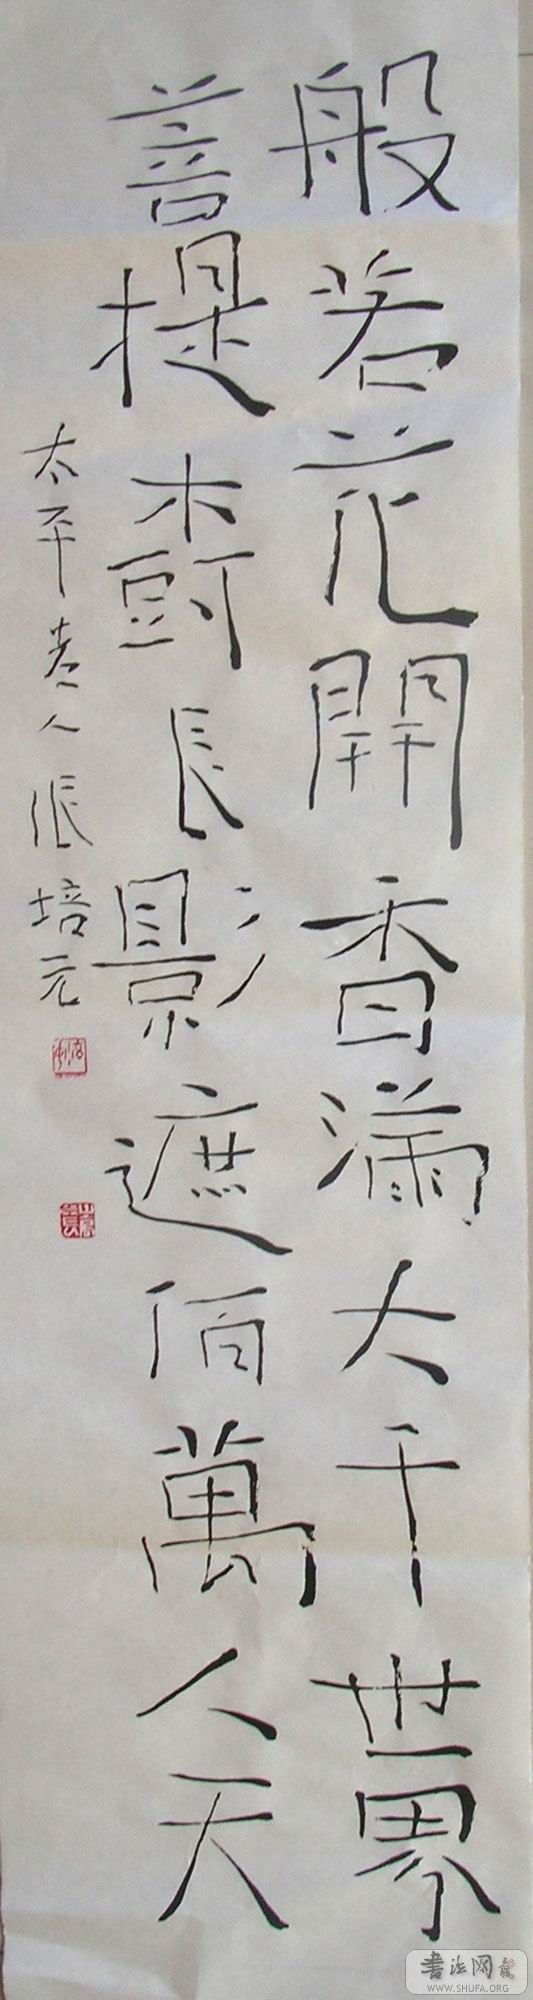 般若花開香滿大千世界
菩提樹長影遮佰萬人天
太平老人張培元
書法网
WWW.SHUFA.ORG